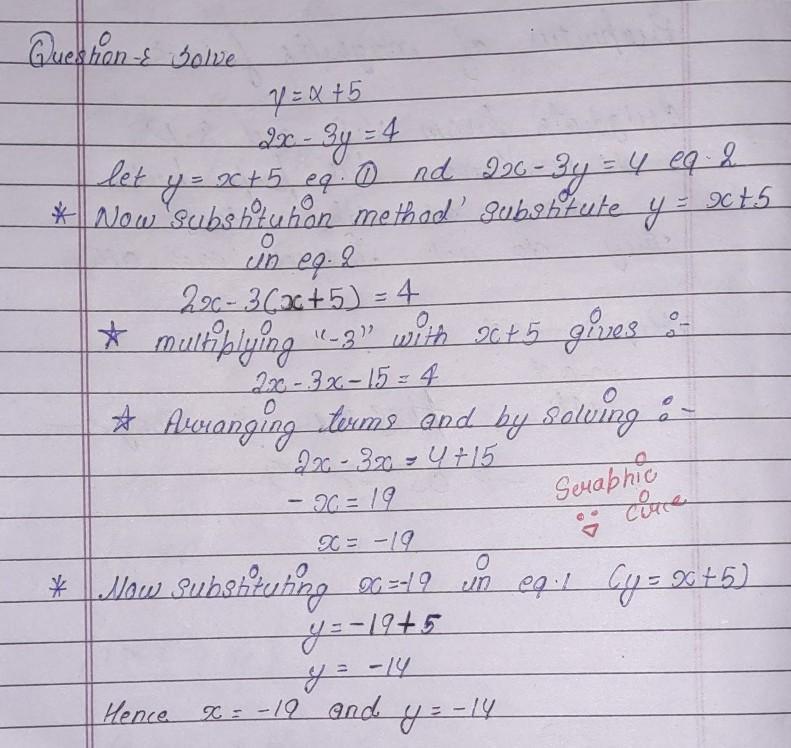 Question-: Solve
y = x + 5
2x - 3y = 4
let y = x+5 eq. ① nd 2x-3y = 4 eq. 2
* Now 'substitution method' substitute y = x+5
in eq. 2
2x - 3(x+5) = 4
☆ multiplying "-3" with x+5 gives :-
2x - 3x - 15 = 4
☆ Arranging terms and by solving :-
2x - 3x = 4+15
- x = 19
Seraphic
Circe
x = -19
* Now substituting x=-19 in eq.1 (y = x+5)
y = -19+5
y = -14
Hence x = -19 and y = -14